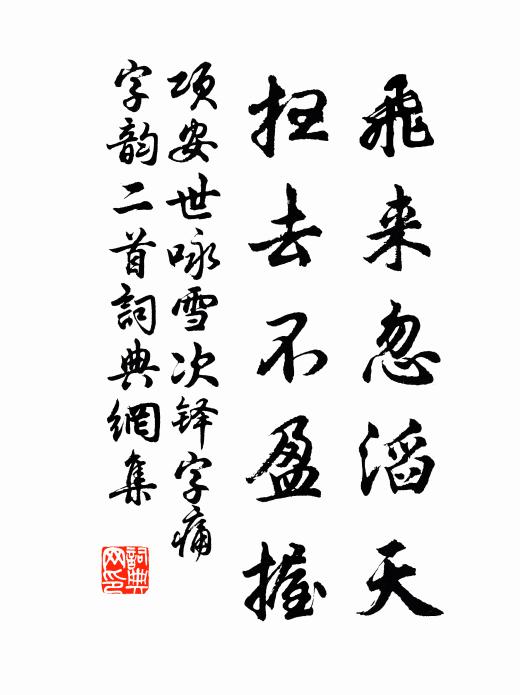 飛来忽滔天
扫去不盈握
项安世咏雪次铎字痛
字韵二首詞典網集
詞典网印